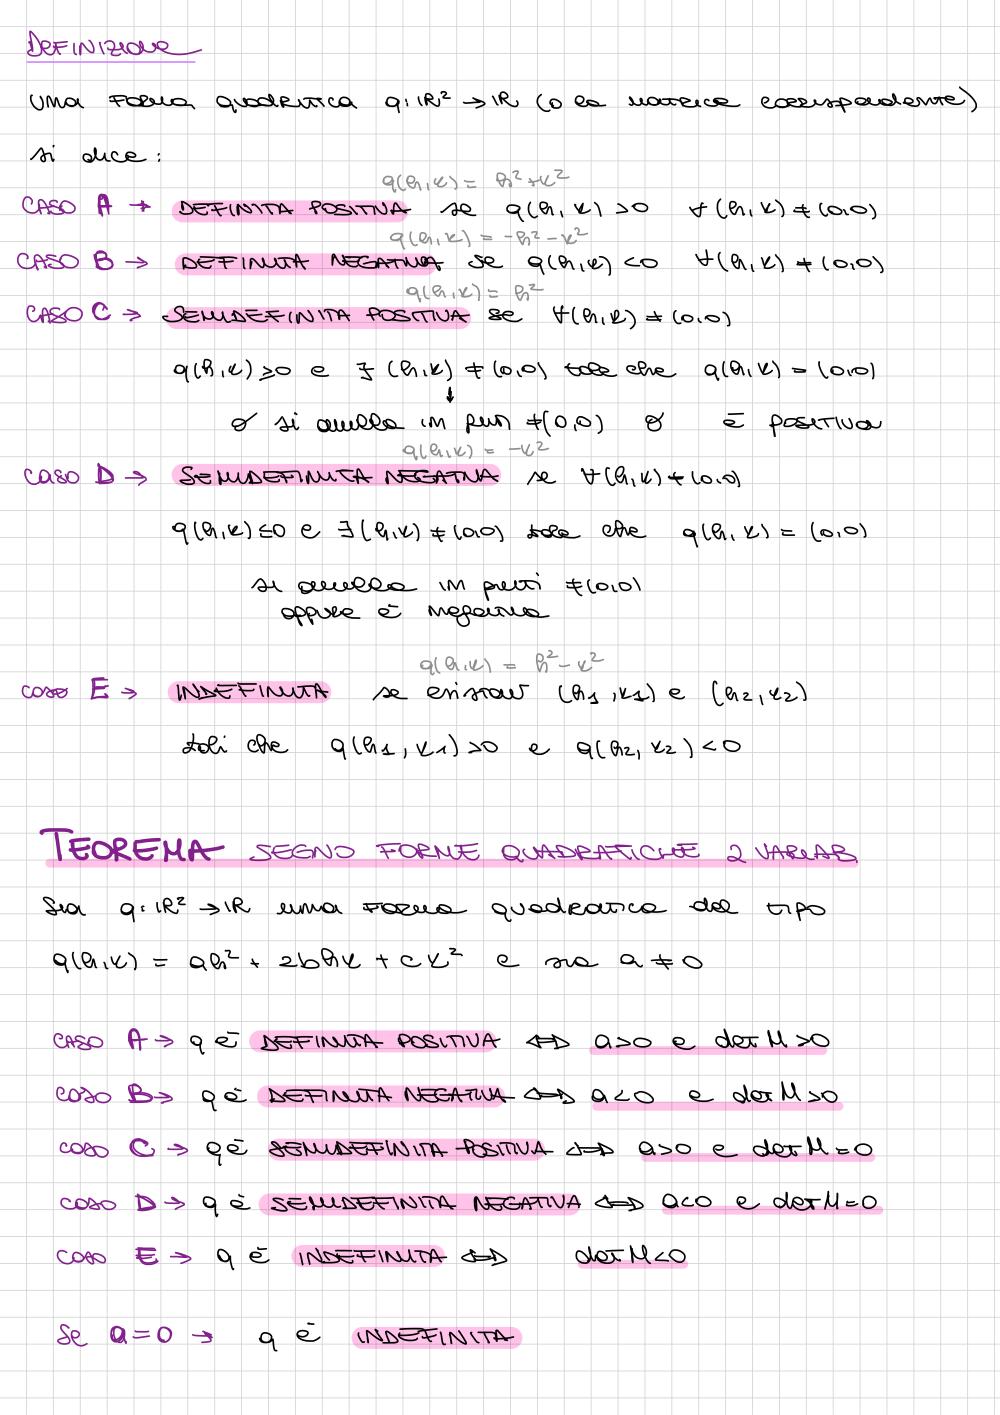 DEFINIZIONE
UNA FORMA QUADRATICA q: IR² → IR (O LA MATRICE CORRISPONDENTE)
si dice:
q(h,k) = h²+k²
CASO A → DEFINITA POSITIVA se q(h,k) >0 ∀(h,k) ≠ (0,0)
q(h,k) = -h²-k²
CASO B → DEFINITA NEGATIVA se q(h,k) <0 ∀(h,k) ≠ (0,0)
q(h,k) = h²
CASO C → SEMIDEFINITA POSITIVA se ∀(h,k) ≠ (0,0)
q(h,k) ≥0 e ∃ (h,k) ≠ (0,0) tale che q(h,k) = (0,0)
↓
o si annulla in punti ≠(0,0) o è POSITIVA
q(h,k) = -k²
CASO D → SEMIDEFINITA NEGATIVA se ∀(h,k) ≠ (0,0)
q(h,k) ≤0 e ∃(h,k) ≠ (0,0) tale che q(h,k) = (0,0)
si annulla in punti ≠(0,0)
oppure è negativa
q(h,k) = h²-k²
CASO E → INDEFINITA se esistono (h1,k1) e (h2,k2)
tali che q(h1,k1) >0 e q(h2,k2) <0
TEOREMA SEGNO FORME QUADRATICHE 2 VARIAB.
Sia q: IR² → IR una FORMA quadratica del tipo
q(h,k) = ah² + 2bhk + ck² e sia a ≠ 0
CASO A → q è DEFINITA POSITIVA ⇔ a>0 e det M >0
CASO B → q è DEFINITA NEGATIVA ⇔ a<0 e det M >0
CASO C → q è SEMIDEFINITA POSITIVA ⇔ a>0 e det M =0
CASO D → q è SEMIDEFINITA NEGATIVA ⇔ a<0 e det M =0
CASO E → q è INDEFINITA ⇔ det M <0
Se a=0 → q è INDEFINITA